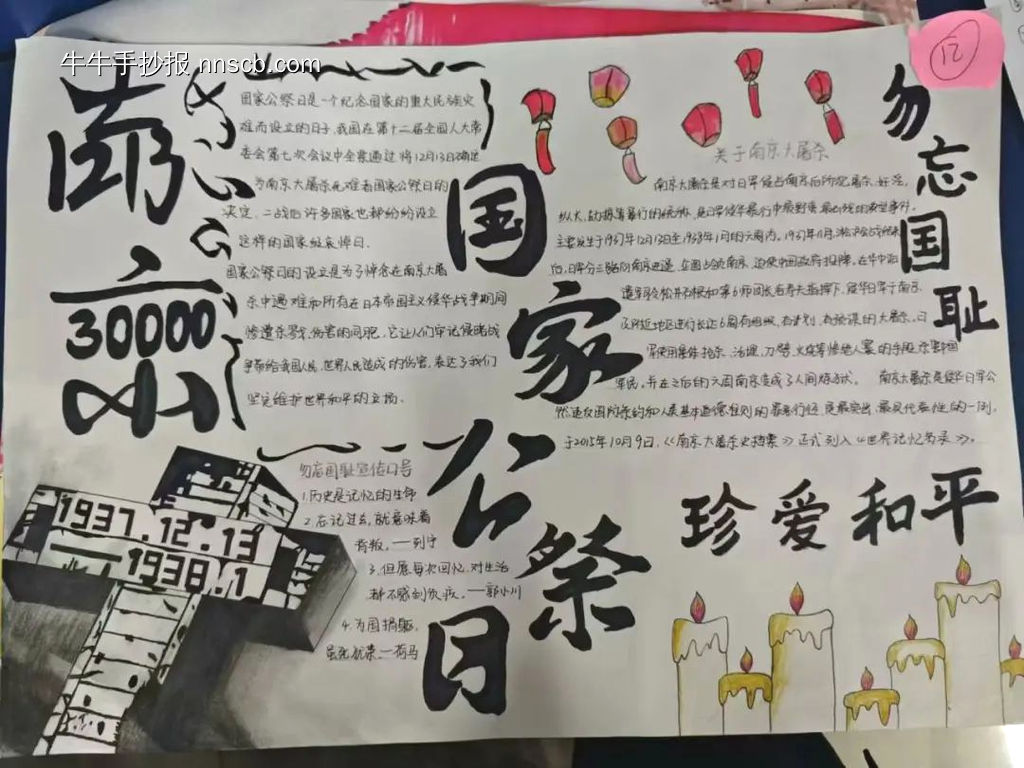 牛牛手抄报 nnscb.com
国家公祭日是一个纪念国家的重大民族灾
难而设立的日子,我国在第十二届全国人大常
委会第七次会议中全票通过将12月13日确定
为南京大屠杀死难者国家公祭日的
决定,二战后许多国家也都纷纷设立
这样的国家级哀悼日.
国家公祭日的设立是为了悼念在南京大屠
杀中遇难和所有在日本帝国主义侵华战争期间
惨遭杀害的同胞,它让人们牢记侵略战
争带给我国人民,世界人民造成的伤害,表达了我们
坚定维护世界和平的立场.
30000
国
家
公
祭
日
勿忘国耻宣传口号
1.历史是记忆的生命
2.忘记过去,就意味着
背叛.—列宁
3.但愿每次回忆,对生活
都不感到负疚.—郭小川
4.为国捐躯,
虽死犹荣.—荷马
1937.12.13
1938.1
关于南京大屠杀
南京大屠杀是对日军侵占南京后所犯屠杀、奸淫、
主要发生于1937年12月13日至1938年1月的六周内.
后,日军分三路向南京进逼,企图占领南京,迫使中国政府投降.在华中派
遣军司令松井石根和第6师团长谷寿夫指挥下,侵华日军于南京
及附近地区进行长达6周有组织、有计划、有预谋的大屠杀.日
军使用集体枪杀、活埋、刀劈、火烧等惨绝人寰的手段杀害中国
军民,并在之后的六周南京变成了人间炼狱. 南京大屠杀是侵华日军公
然违反国际条约和人类基本道德准则的罪恶行径,是最突出、最具代表性的一例.
于2015年10月9日,《南京大屠杀史档案》正式列入《世界记忆名录》.
勿
忘
国
耻
珍爱和平